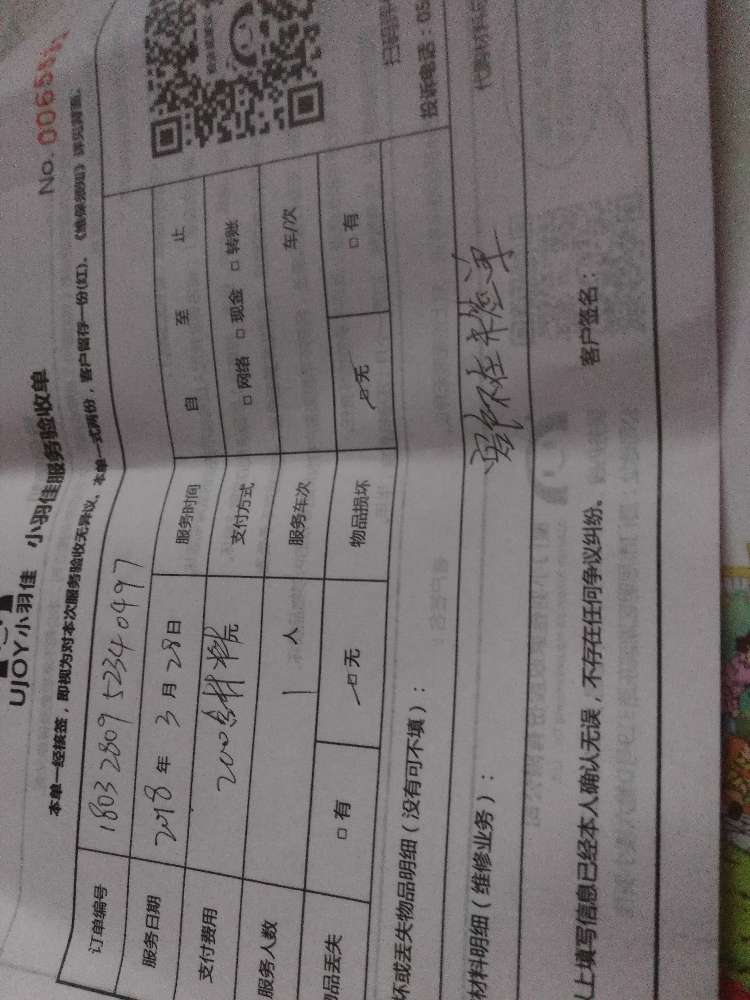 UJOY小羽佳 小羽佳服务验收单
No.
本单一经核签，即视为对本次服务验收无异议、本单一式两份，客户留存一份(红)、《维保须知》详见背面。
订单编号 1803 2809 5234 0497
服务日期 2018 年 3 月 28 日 服务时间 自 至 止
支付费用 200 支付方式 □ 网络 □ 现金 □ 转账
服务人数 1 人 服务车次 车/次
物品丢失 □ 有 □ 无 物品损坏 □ 无 □ 有
坏或丢失物品明细（没有可不填）：
投诉电话：05
材料明细（维修业务）：
以上填写信息已经本人确认无误，不存在任何争议纠纷。 客户签名：